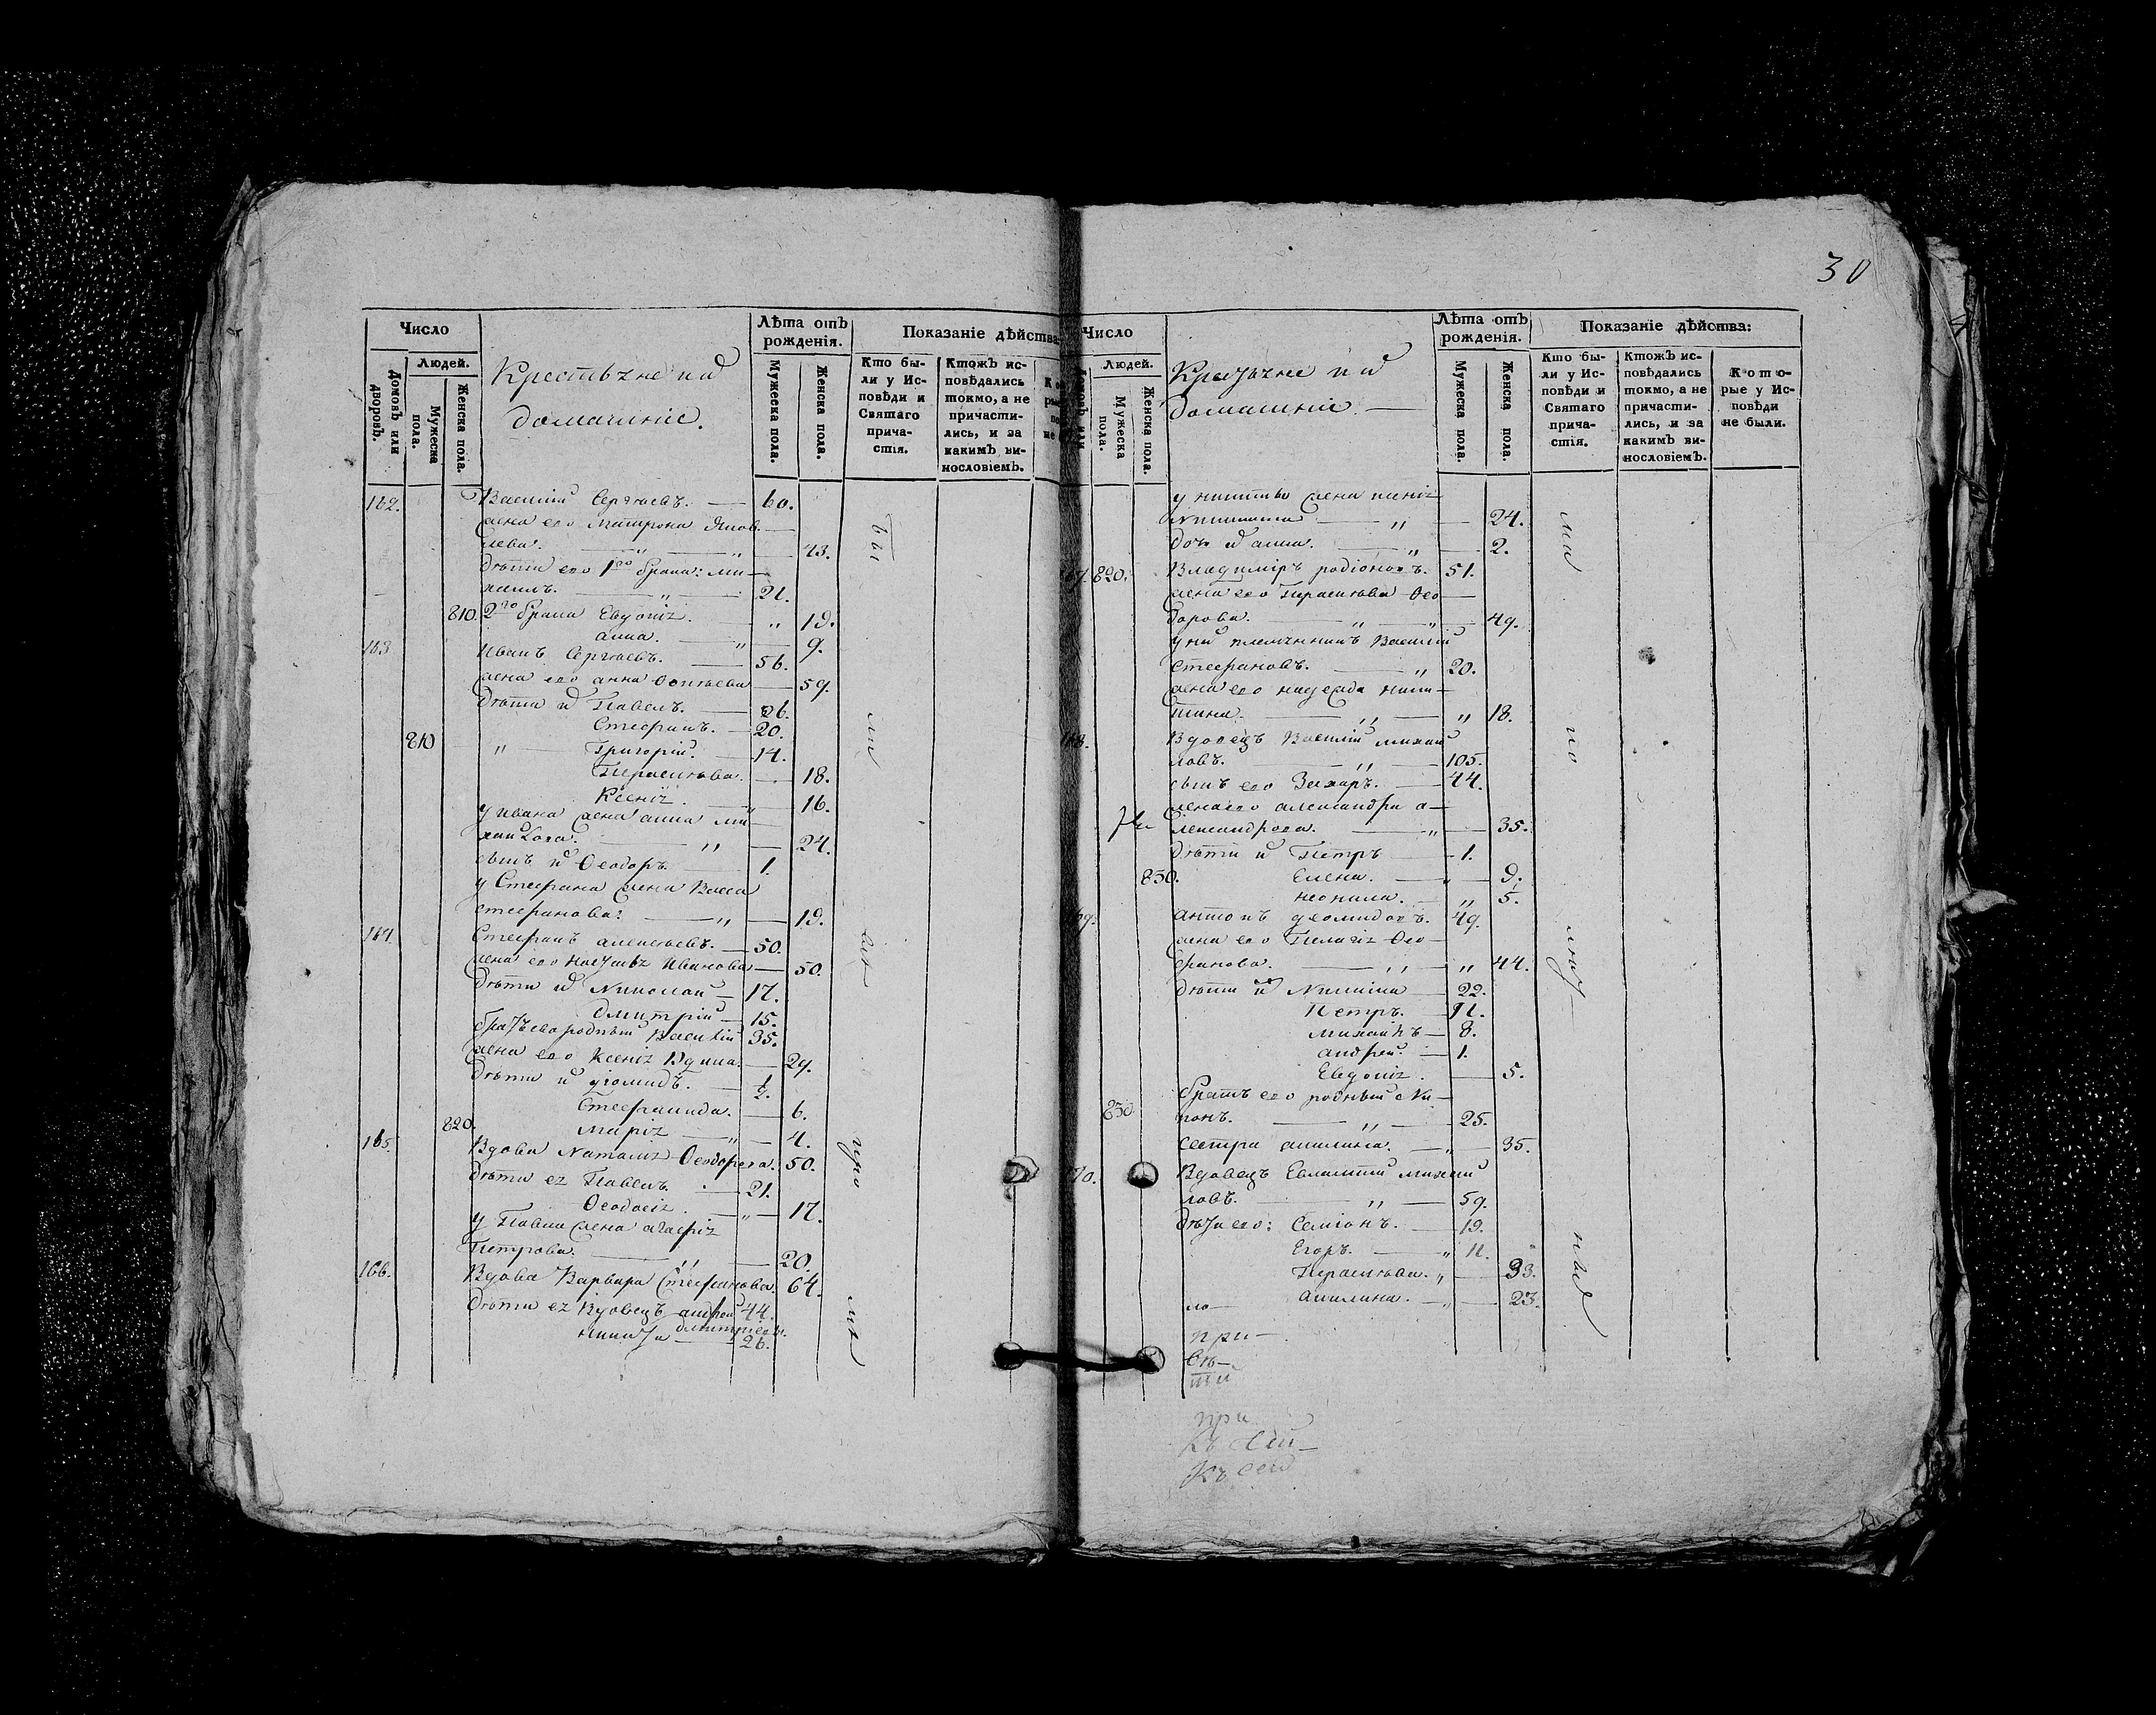 30
Число
Лѣта отъ рожденія.
Показаніе дѣйства:
Людей.
Домовъ или дворовъ.
Мужеска пола.
Женска пола.
Крестьяне и ихъ
домашніе.
Мужеска пола.
Женска пола.
Кто бы-
ли у Ис-
повѣди и
Святаго
прича-
стія.
Ктожъ ис-
повѣдались
токмо, а не
причасти-
лись, и за
какимъ ви-
нословіемъ.
162. Василій Сергѣевъ. 60.
жена его Матрона Яков
лева. 43.
дѣти его 1го брака: Ми
хаилъ. 21.
810. 2го брака Евдокія. 19.
Анна. 9.
163 Иванъ Сергѣевъ. 56.
жена его Анна 59.
дѣти их Павелъ. 26.
Стефанъ. 20.
810 Григорій. 14.
Параскева. 18.
Ксенія. 16.
у Ивана жена Анна Ми
хайлова. 24.
сынъ их Ѳеодоръ. 1.
у Стефана жена Васса
Стефанова. 19.
164. Стефанъ Алексѣевъ. 50.
жена его Настасья Иванова 50.
дѣти их Николай 17.
Дмитрій 15.
братъ его родный Василій 35.
жена его Ксенія 29.
дѣти их Діомидъ. ½.
Стефанида. 6.
820. Марія 4.
165. Вдова Наталія Ѳеодорова. 50.
дѣти ея Павелъ. 21.
Ѳеодосія. 17.
у Павла жена Агафія
Петрова. 20.
166. Вдова Варвара Стефанова. 64.
дѣти ея вдовецъ Андрей 44.
Дмитріевы.
Никита 26.
бы
ли
вся
при
Число
Лѣта отъ рожденія.
Показаніе дѣйства:
Людей.
Мужеска пола.
Женска пола.
Крестьяне и ихъ
домашніе
Мужеска пола.
Женска пола.
Кто бы-
ли у Ис-
повѣди и
Святаго
прича-
стія.
Ктожъ ис-
повѣдались
токмо, а не
причасти-
лись, и за
какимъ ви-
нословіемъ.
Кото-
рые у Ис-
повѣди
не были.
у Никиты жена Ксенія
Никитина 24.
дочь их Анна. 2.
820. Владиміръ Родіоновъ. 51.
жена его Параскева Ѳео
дорова. 49.
у них племянникъ Василій
Стефановъ. 20.
жена его Надежда Ники
тина. 18.
168. Вдовецъ Василій Михай
ловъ. 105.
сынъ его Захаръ. 44.
жена его Александра А
лександрова. 35.
дѣти их Петръ 1.
830. Елена. 9.
Неонила. 5.
Антонъ Діомидовъ. 49.
жена его Пелагія Ѳео
фанова. 44.
дѣти их Никита 22.
Петръ. 11.
Михаилъ 8.
Андрей. 1.
Евдокія. 5.
братъ его родный Ни
830 конъ. 25.
сестра Акилина. 35.
70. Вдовецъ Евлампій Михай
ловъ. 59.
дѣти его: Семіонъ. 19.
Егоръ. 11.
Параскева. 33.
Акилина. 23.
при
при